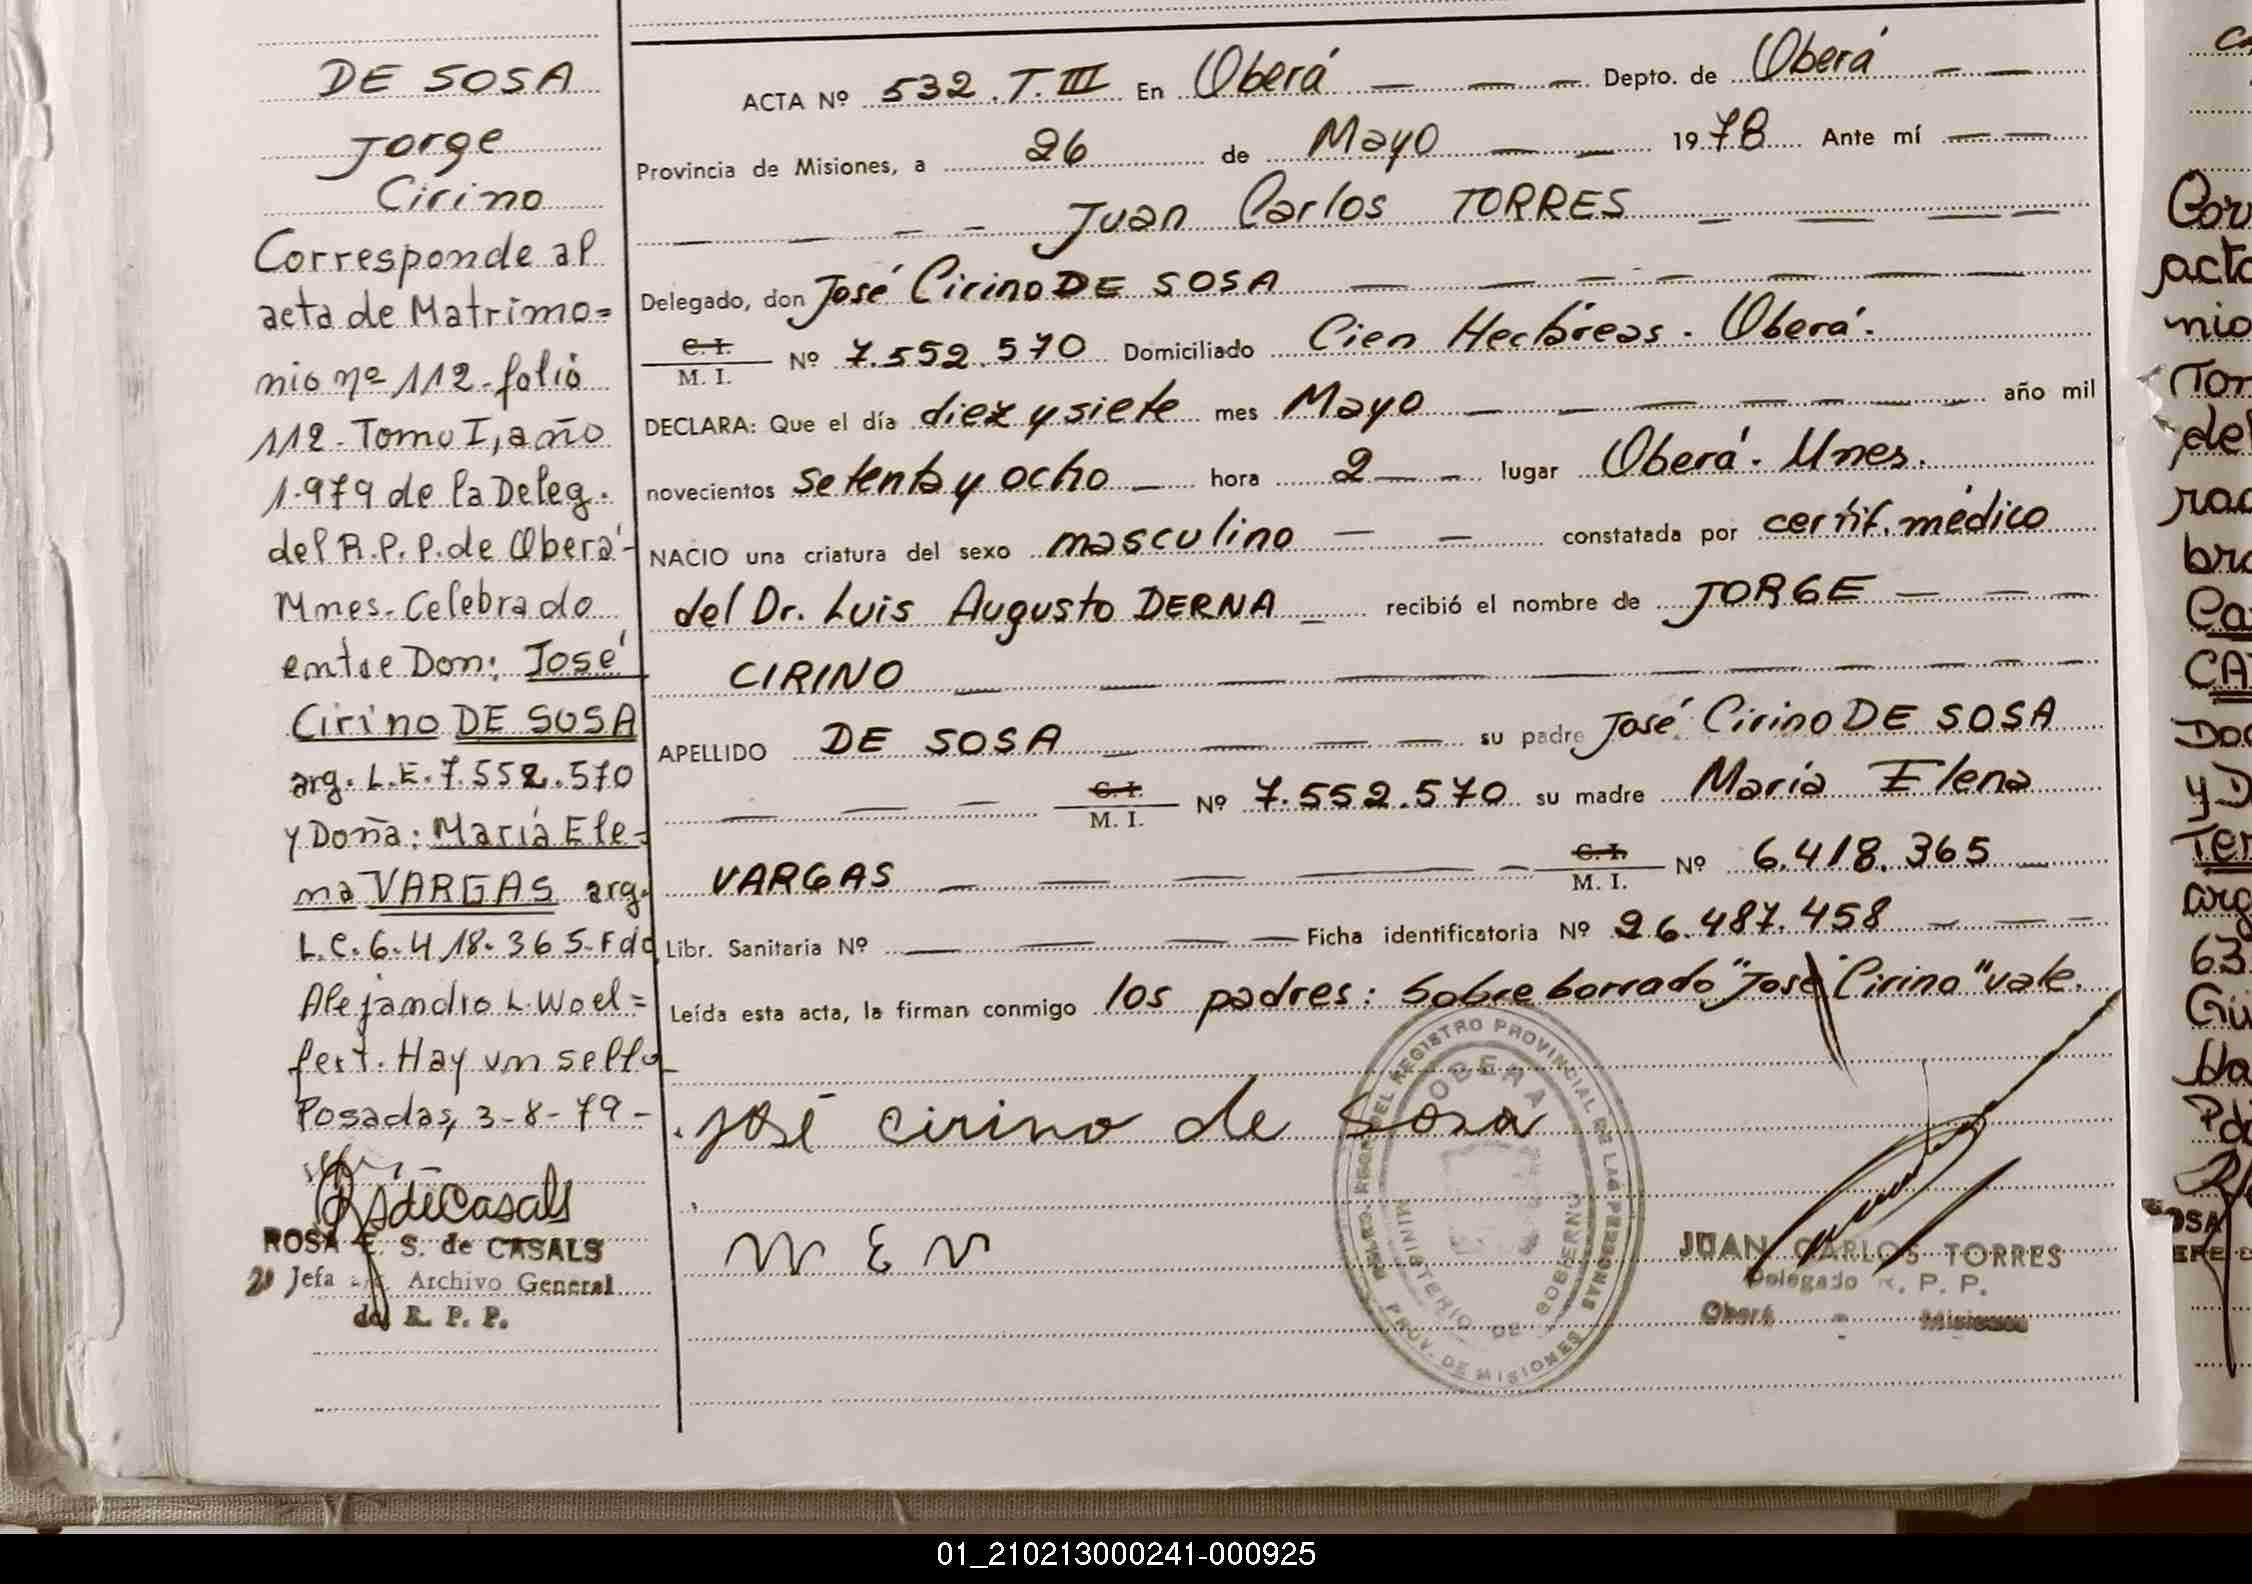 DE SOSA
Jorge
Cirino
Corresponde al
acta de Matrimo=
nio nº 112-folio
112-Tomo I, año
1.979 de la Deleg.
del R.P.P. de Oberá-
Mnes. Celebrado
entre Don: José
Cirino DE SOSA
arg. L.E. 7.552.570
y Doña: María Ele=
na VARGAS arg.
L.C. 6.418.365-Fdo
Alejandro L. Woel=
fert. Hay un sello
Posadas, 3-8-79-
RS de Casals
ROSA E. S. de CASALS
Jefa Archivo General
del R. P. P.
ACTA Nº 532. T. III En Oberá — — — Depto. de Oberá — —
Provincia de Misiones, a 26 de Mayo — — 1978 Ante mí — —
— — — — Juan Carlos TORRES — — — —
Delegado, don José Cirino DE SOSA — — — — — — —
C. I.
M. I. Nº 7.552.570 Domiciliado Cien Hectáreas. Oberá.
DECLARA: Que el día diez y siete mes Mayo — — — — — — — año mil
novecientos setenta y ocho — hora 2 — — lugar Oberá. Mnes.
NACIO una criatura del sexo masculino — — constatada por certif. médico
del Dr. Luis Augusto DERNA — recibió el nombre de JORGE — — —
CIRINO — — — — — — — — — —
APELLIDO DE SOSA — — — — su padre José Cirino DE SOSA
— — — C. I.
M. I. Nº 7.552.570 su madre María Elena
VARGAS — — — — — C. I.
M. I. Nº 6.418.365 —
Libr. Sanitaria Nº — — — — Ficha identificatoria Nº 26.487.458 — — —
Leída esta acta, la firman conmigo los padres: Sobre borrado "José Cirino" vale.
José cirino de Sosa
M E V
REGISTRO PROVINCIAL DE LAS PERSONAS
OBERA
MINISTERIO DE GOBIERNO
PROV. DE MISIONES
JUAN CARLOS TORRES
Delegado R. P. P.
Oberá - Misiones
01_210213000241-000925